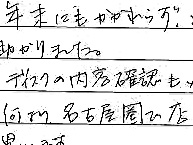 年末にもかかわらず、
助かりました。
ディスクの内容確認も
何より名古屋圏で店
思います